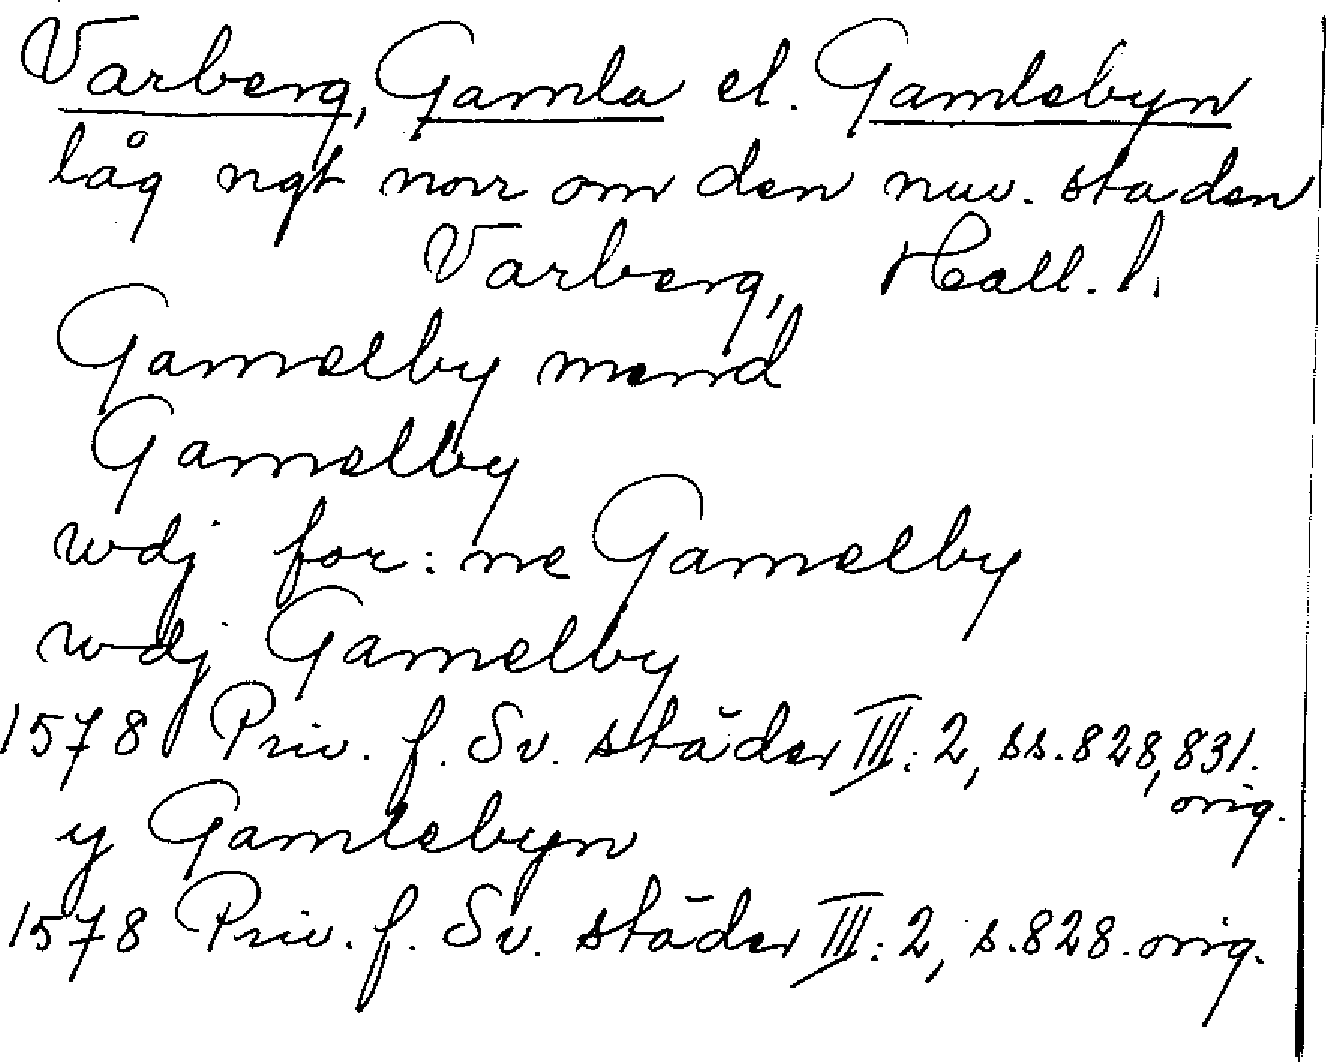 Varberg, Gamla el. Gamlebyn
låg ngt norr om den nuv. staden
Varberg, Hall. l.
Gamelby mend
Gamelby
wdj for: ne Gamelby
wdj Gamelby
1578 Priv. f. Sv. städer III: 2, ss. 828, 831.
orig.
y Gamlebyn
1578 Priv. f. Sv. städer III: 2, s. 828. orig.